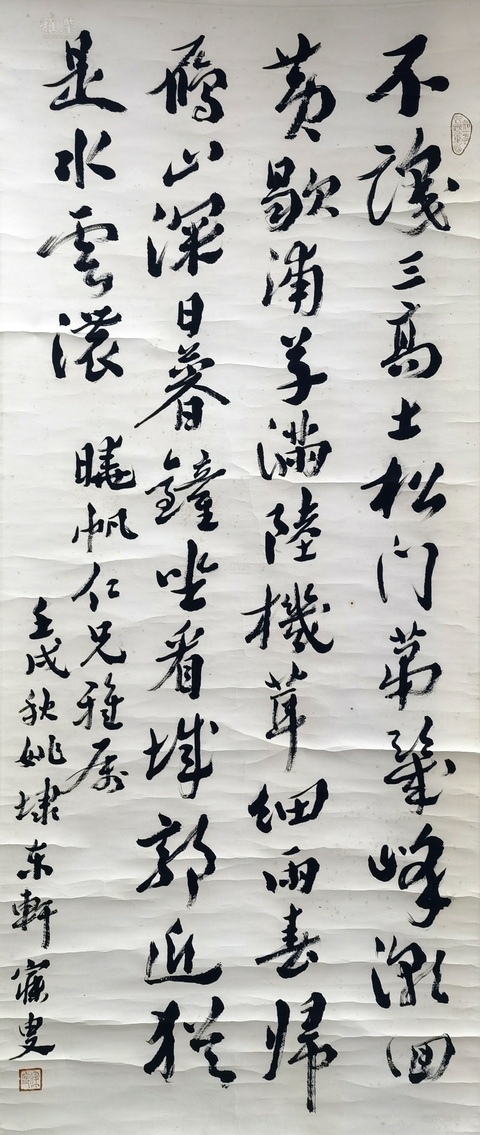 不識三高士松門苐幾峰潮回
黄歇浦草滿陸機茸細雨春歸
鴈山深日暮鐘坐看城郭近猶
是水雲濃
曉帆仁兄雅属
壬戌秋姚埭東軒寐叟